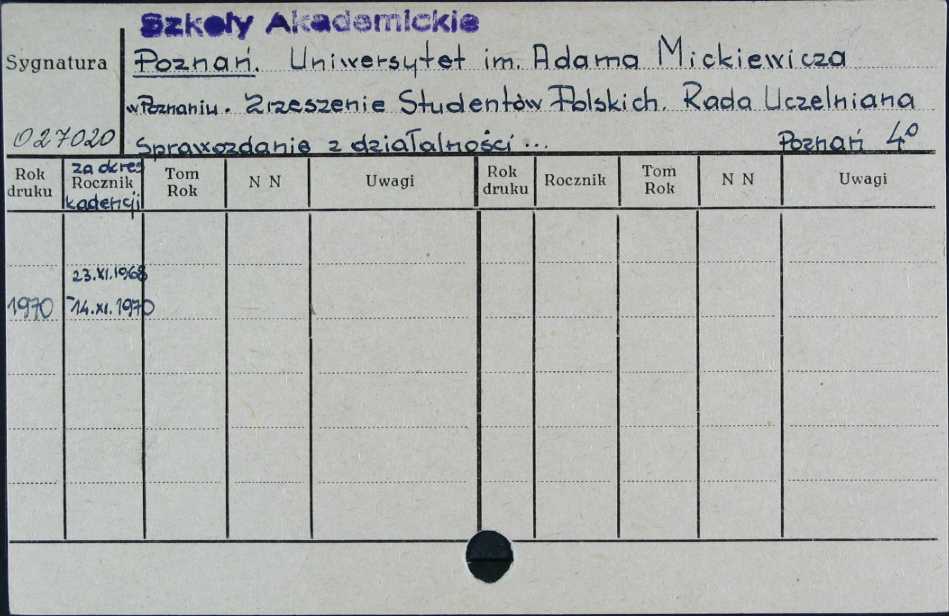 Szkoły Akademickie
Sygnatura
Poznań. Uniwersytet im. Adama Mickiewicza
w Poznaniu. Zrzeszenie Studentów Polskich. Rada Uczelniana
027020
Sprawozdanie z działalności... Poznań 4°
Rok druku
za okres Rocznik kadencji
Tom Rok
N N
Uwagi
Rok druku
Rocznik
Tom Rok
N N
Uwagi
23.XI.1968
1970 -14.XI.1970